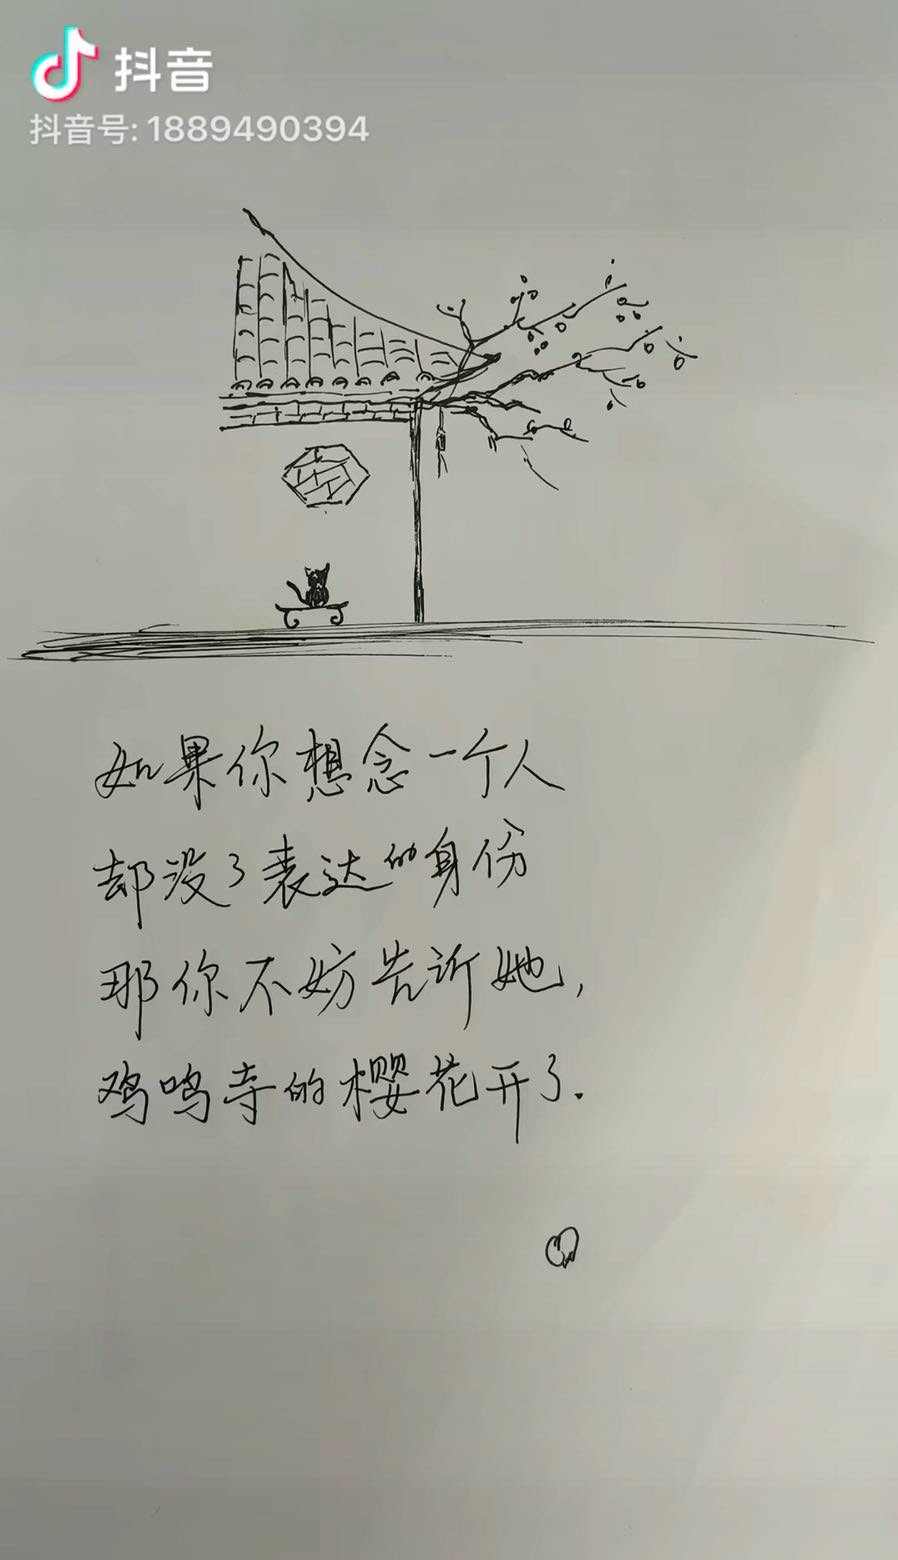 抖音
抖音号: 1889490394
如果你想念一个人
却没了表达的身份
那你不妨告诉她,
鸡鸣寺的樱花开了.